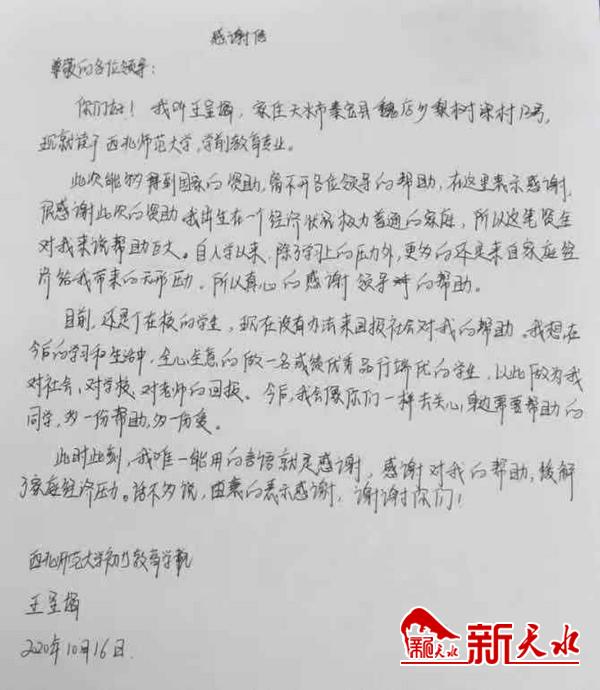 感谢信
尊敬的各位领导：
你们好！我叫王呈梅，家住天水市秦安县魏店乡梨树梁村13号，
现就读于西北师范大学，学前教育专业。
此次能够得到国家的资助，离不开各位领导的帮助，在这里表示感谢，
很感谢此次的资助我出生在一个经济状况极为普通的家庭，所以这笔资金
对我来说帮助巨大。自入学以来，除了学习上的压力外，更多的还是来自家庭经
济给我带来的无形压力，所以真心的感谢领导对的帮助。
目前，还是个在校的学生，现在没有办法来回报社会对我的帮助，我想在
今后的学习和生活中，全心全意的做一名成绩优秀品行端优的学生，以此做为我
对社会、对学校、对老师的回报。今后，我会像你们一样去关心身边需要帮助的
同学，多一份帮助，多一份爱。
此时此刻，我唯一能用的言语就是感谢，感谢对我的帮助，缓解
了家庭经济压力。话不多说，由衷的表示感谢，谢谢你们！
西北师范大学 教育学院
王呈梅
2020年10月16日.
天水
新天水